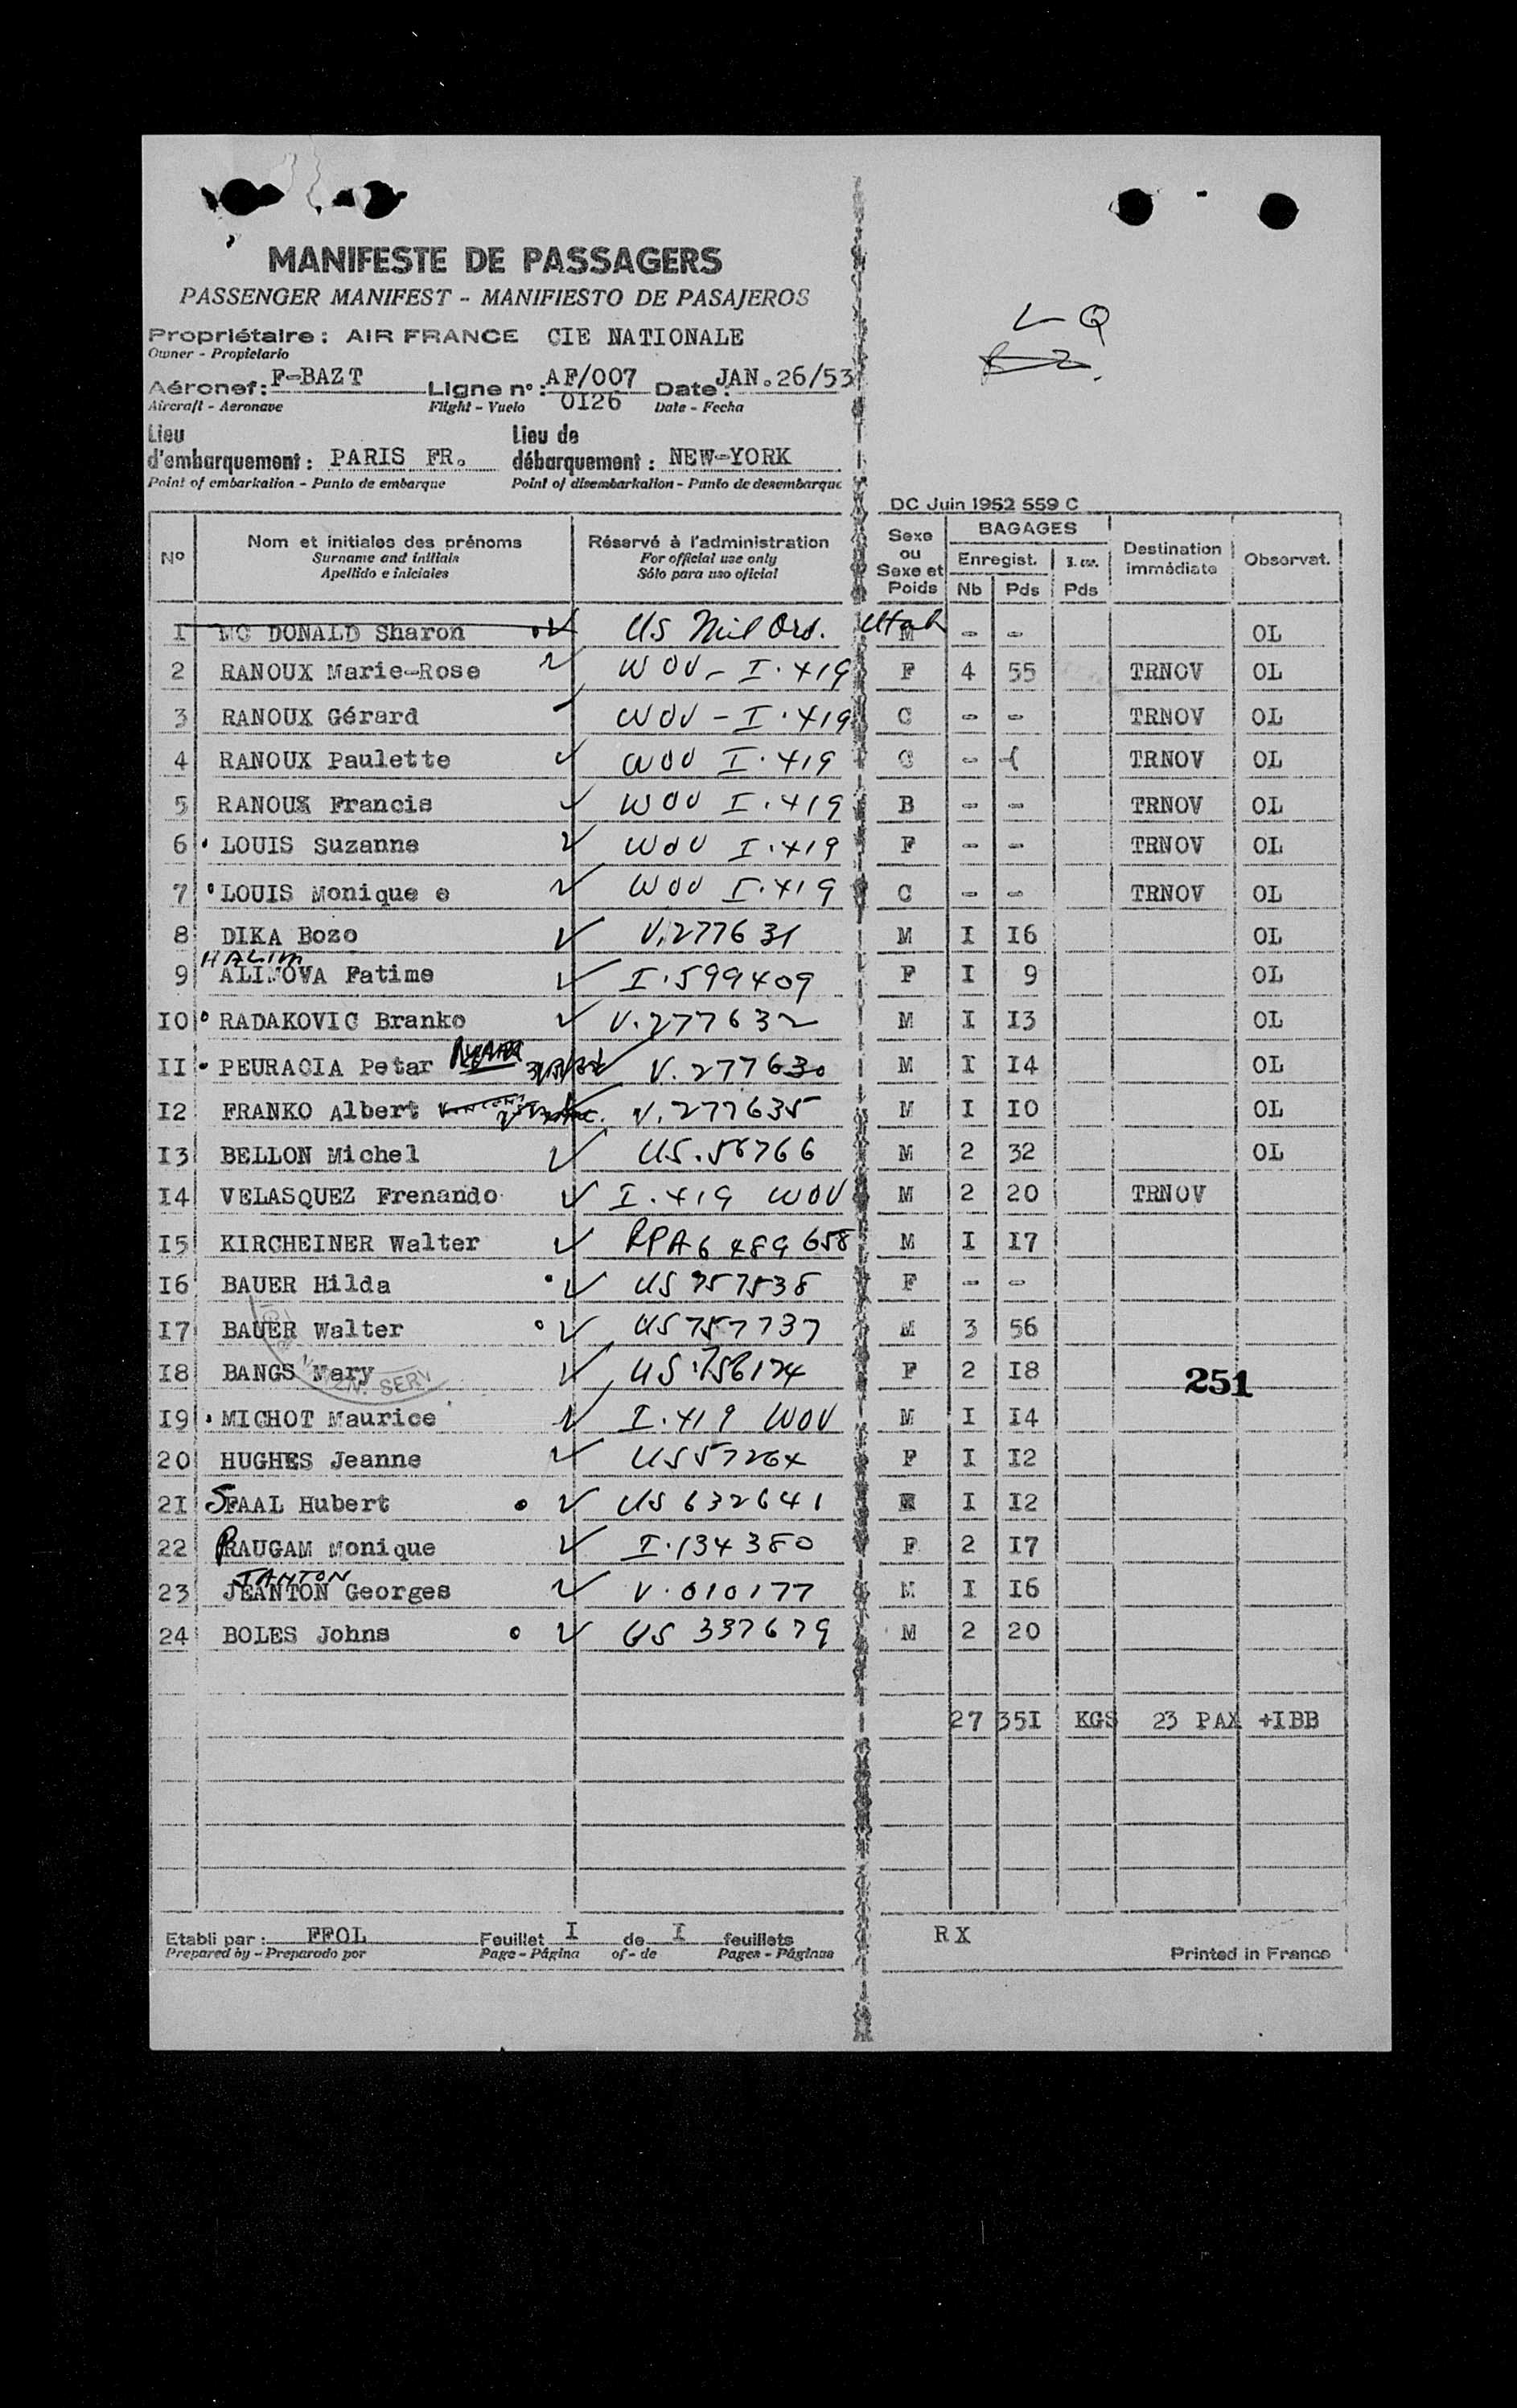 MANIFESTE DE PASSAGERS
PASSENGER MANIFEST - MANIFIESTO DE PASAJEROS
L Q
Propriétaire : AIR FRANCE CIE NATIONALE
Owner - Propietario
Aéronef : F-BAZT Ligne n° : AF/007 0I26 Date : JAN.26/53
Aircraft - Aeronave Flight - Vuelo Date - Fecha
Lieu d'embarquement : PARIS FR. Lieu de débarquement : NEW-YORK
Point of embarkation - Punto de embarque Point of disembarkation - Punto de desembarque
DC Juin 1952 559 C
N° Nom et initiales des prénoms Réservé à l'administration Sexe ou Sexe et Poids BAGAGES Destination immédiate Observat.
Surname and initials For official use only Enregist.
Apellido e iniciales Sólo para uso oficial Nb Pds Pds
I MC DONALD Sharon US Mil Ord. Utah M - - OL
2 RANOUX Marie-Rose WOV - I.419 F 4 55 TRNOV OL
3 RANOUX Gérard WOV - I.419 C - - TRNOV OL
4 RANOUX Paulette WOV I.419 C - - TRNOV OL
5 RANOUX Francis WOV I.419 B - - TRNOV OL
6 LOUIS Suzanne WOV I.419 F - - TRNOV OL
7 LOUIS Monique e WOV I.419 C - - TRNOV OL
8 DIKA Bozo V.277631 M I I6 OL
HALIM
9 ALIMOVA Fatime I.599409 F I 9 OL
IO RADAKOVIC Branko V.277632 M I I3 OL
II PEURACIA Petar V.277630 M I I4 OL
I2 FRANKO Albert V.277635 M I IO OL
I3 BELLON Michel US.56766 M 2 32 OL
I4 VELASQUEZ Frenando I.419 WOV M 2 20 TRNOV
I5 KIRCHEINER Walter RPA6 489 658 M I I7
I6 BAUER Hilda US 757538 F - -
I7 BAUER Walter US 757737 M 3 56
I8 BANGS Mary US.756124 F 2 I8
251
SERV
I9 MICHOT Maurice I.419 WOV M I I4
20 HUGHES Jeanne US57264 F I I2
2I SFAAL Hubert US 632641 M I I2
22 RAUGAM Monique I.134380 F 2 I7
JANTON
23 JEANTON Georges V.010177 M I I6
24 BOLES Johns US 337679 M 2 20
27 35I KGS 23 PAX +IBB
Etabli par : FFOL Feuillet I de I feuillets RX
Prepared by - Preparado por Page - Página of - de Pages - Páginas Printed in France